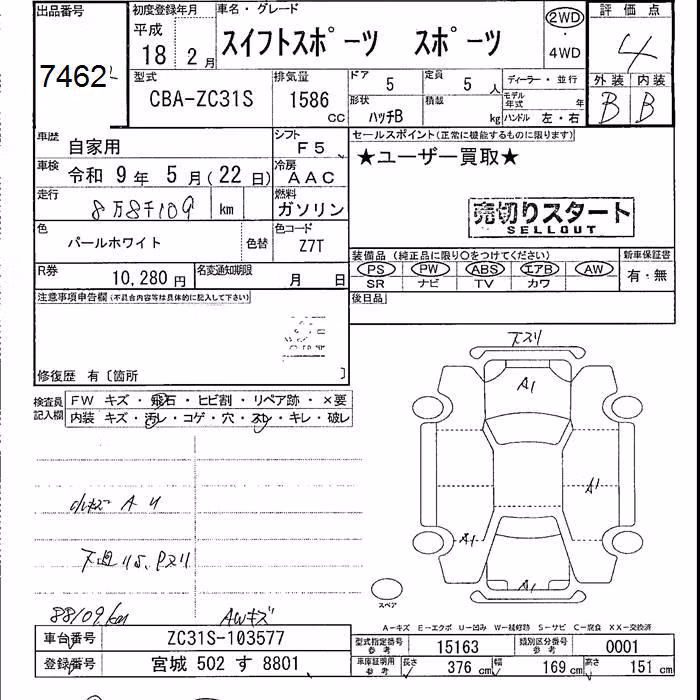 出品番号
7462
初度登録年月
平成
18 2月
車名・グレード
スイフトスポーツ スポーツ
2WD
・
4WD
評価点
4
外装 内装
B B
型式
CBA-ZC31S
排気量
1586
CC
ドア
5
定員
5 人
形状
ハッチB
積載
kg
ディーラー・並行
モデル年式 年
ハンドル 左・右
車歴
自家用
シフト
F5
車検
令和 9年 5月(22日)
冷房
AAC
走行
8万8千109 km
燃料
ガソリン
色
パールホワイト
色替
色コード
Z7T
R券
10,280円
名変通知期限
月 日
セールスポイント(正常に機能するものに限ります)
★ユーザー買取★
売切りスタート
SELLOUT
装備品(純正品に限り○をつけてください)
PS PW ABS エアB AW
SR ナビ TV カワ
新車保証書
有・無
後日品
注意事項申告欄(不具合内容等は具体的に記入して下さい)
修復歴 有〔箇所 〕
検査員記入欄
FW キズ・飛石・ヒビ割・リペア跡・×要
内装 キズ・汚レ・コゲ・穴・スレ・キレ・破レ
小キズ A U
下廻りS、Pスリ
88109km
AWキズ
下スリ
A1
A1
A1
A1
スペア
A-キズ E-エクボ U-凹み W-補修跡 S-サビ C-腐食 XX-交換済
車台番号
ZC31S-103577
登録番号
宮城 502 す 8801
型式指定番号
参考
15163
類別区分番号
参考
0001
車庫証明用
参考
長さ 376cm
幅 169cm
高さ 151cm